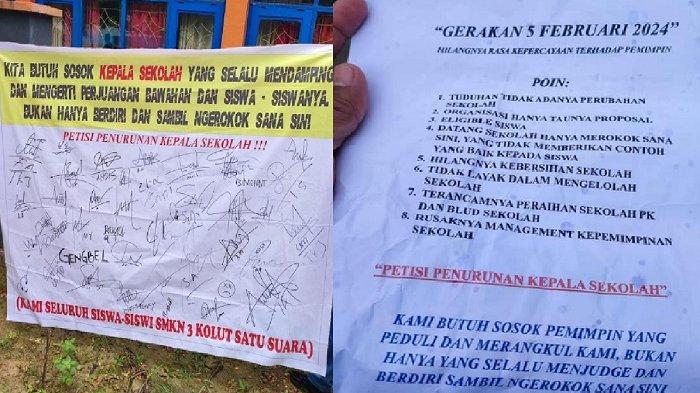 KITA BUTUH SOSOK KEPALA SEKOLAH YANG SELALU MENDAMPING
DAN MENGERTI PERJUANGAN BAWAHAN DAN SISWA - SISWANYA.
BUKAN HANYA BERDIRI DAN SAMBIL NGEROKOK SANA SINI
PETISI PENURUNAN KEPALA SEKOLAH !!!
GENGBEL
(KAMI SELURUH SISWA-SISWI SMKN 3 KOLUT SATU SUARA)
"GERAKAN 5 FEBRUARI 2024"
HILANGNYA RASA KEPERCAYAAN TERHADAP PEMIMPIN
POIN:
1. TUDUHAN TIDAK ADANYA PERUBAHAN
SEKOLAH
2. ORGANISASI HANYA TAUNYA PROPOSAL
3. ELIGIBLE SISWA
4. DATANG SEKOLAH HANYA MEROKOK SANA
SINI, YANG TIDAK MEMBERIKAN CONTOH
YANG BAIK KEPADA SISWA
5. HILANGNYA KEBERSIHAN SEKOLAH
6. TIDAK LAYAK DALAM MENGELOLAH
SEKOLAH
7. TERANCAMNYA PERAIHAN SEKOLAH PK
DAN BLUD SEKOLAH
8. RUSAKNYA MANAGEMENT KEPEMIMPINAN
SEKOLAH
"PETISI PENURUNAN KEPALA SEKOLAH"
KAMI BUTUH SOSOK PEMIMPIN YANG
PEDULI DAN MERANGKUL KAMI, BUKAN
HANYA YANG SELALU MENJUDGE DAN
BERDIRI SAMBIL NGEROKOK SANA SINI